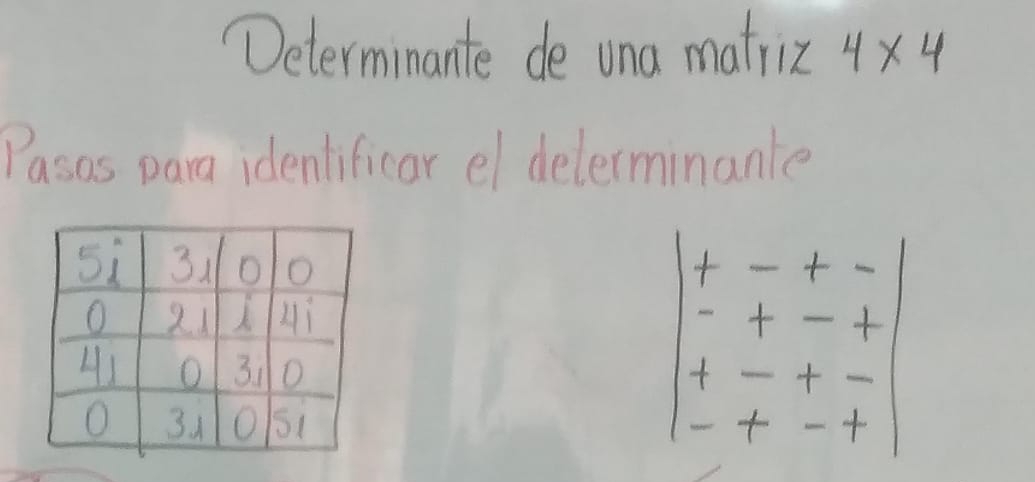 Determinante de una matriz 4 x 4
Pasos para identificar el determinante
5i 3i 0 0
0 2i i 4i
4i 0 3i 0
0 3i 0 5i
+ - + -
- + - +
+ - + -
- + - +